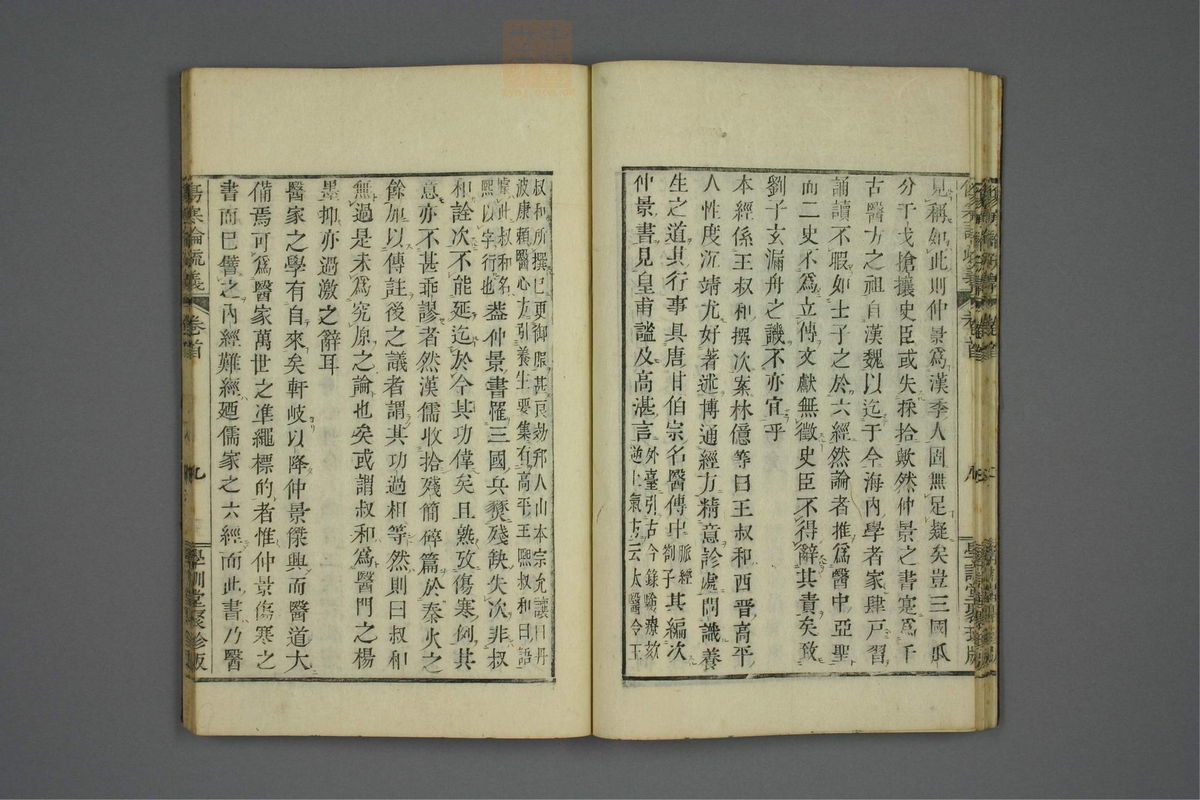 見稱如此則仲景爲漢季人固無足疑矣豈三國瓜
分干戈搶攘史臣或失採拾歟然仲景之書寔爲千
古醫方之祖自漢魏以迄于今海內學者家肆戸習
誦讀不暇如士子之於六經然論者推爲醫中亞聖
而二史不爲立傳文獻無徵史臣不得辭其責矣致
劉子玄漏舟之譏不亦宜乎
本經係王叔和撰次案林億等曰王叔和西晋高平
人性度沉靖尤好著述博通經方精意診處問識養
生之道其行事具唐甘伯宗名醫傳中脈經劄子其編次
仲景書見皇甫謐及高湛言外臺引古今錄驗療欬逆上氣方云太醫令王
叔和所撰已更御服甚良劾邦人山本宗允讓曰丹
波康賴醫心方引養生要集有高平王熙叔和曰語
此叔和名熙以字行也蓋仲景書罹三國兵燹殘缺失次非叔
和詮次不能延迄於今其功偉矣且熟攷傷寒例其
意亦不甚乖謬者然漢儒收拾殘簡碎篇於秦火之
餘加以傳註後之議者謂其功過相等然則曰叔和
無過是未爲究原之論也矣或謂叔和爲醫門之楊
墨抑亦過激之辭耳
醫家之學有自來矣軒岐以降仲景傑興而醫道大
備焉可爲醫家萬世之準繩標的者惟仲景傷寒之
書而已譬之內經難經廼儒家之六經而此書乃醫
傷寒論疏義
卷首
九
學訓堂聚珍版